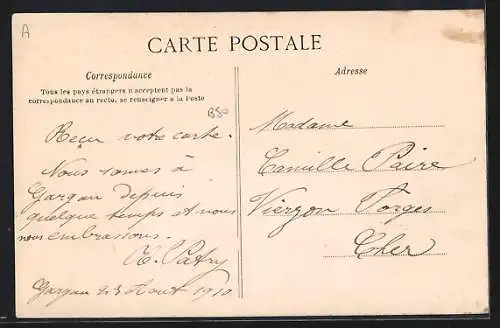 A
CARTE POSTALE
Correspondance
Adresse
Tous les pays étrangers n'acceptent pas la
correspondance au recto, se renseigner à la Poste
B50
Reçu votre carte.
Nous somes à
Gargan depuis
quelque temps et nous
nous embrassons.
Gargan 23 Aout 1910
Madame
Camille Paire
Vierzon Forges
Cher